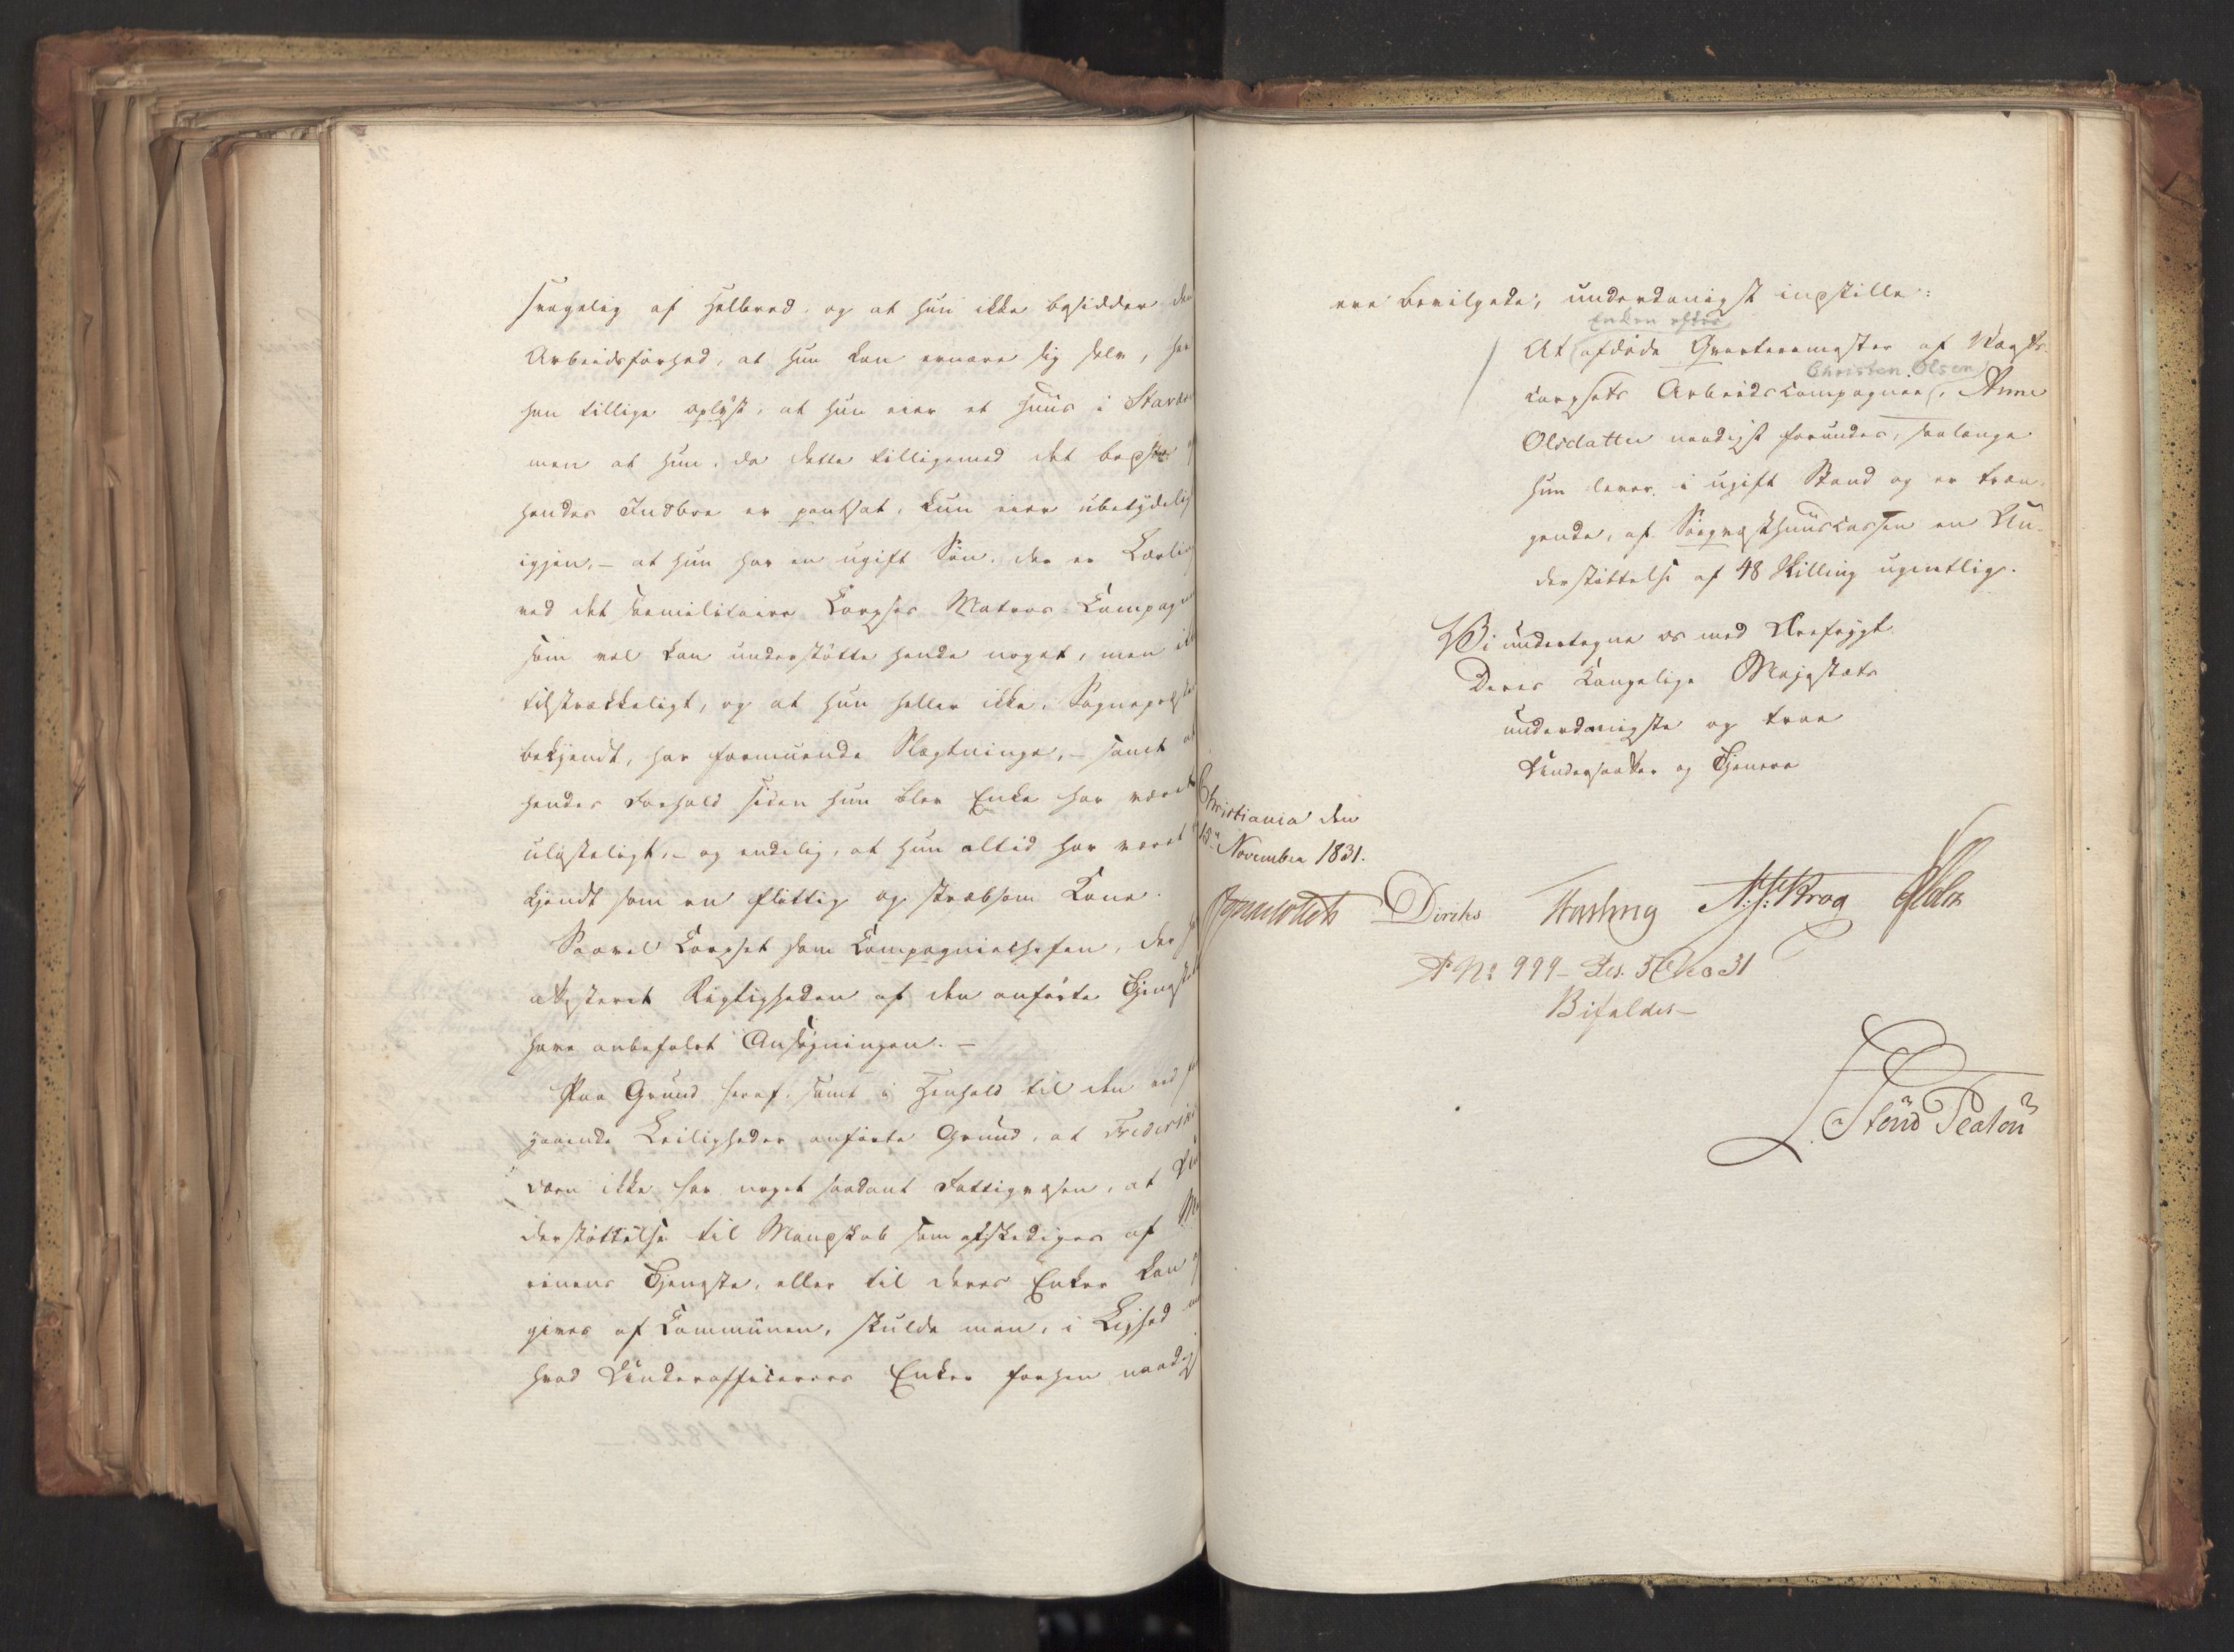 svagelig af Helbred og at hun ikke besidder den
Arbeidsførhed, at hun kan ernære sig selv, har
han tillige oplyst, at hun eier et Huus i Stavern
men at hun, da dette tilligemed det bedste
hendes Indboe er pantsat, kun eier ubetydelig
igjen, – at hun har en ugift Søn, der er Lærling
ved det sømilitaire Corpses Matros Compagni
som vel kan understøtte hende noget, men ikke
tilstrækkeligt, og at hun heller ikke, Sognepræsten
bekjendt, har formuende Slægtninge, – samt at
hendes Forhold siden hun blev Enke har været
ulasteligt, – og endelig, at hun altid har været
kjendt som en flittig og stræbsom Kone.
Saavel Corpset som Compagniechefen, der
attesteret Rigtigheden af den anførte Tjeneste
have anbefalet Ansøgningen. –
Paa Grund heraf, samt i Henhold til den ved
gaaende Leiligheder anførte Grund, at Frederiks
værn ikke har noget saadant Fattigvæsen, at Un
derstøttelse til Mandskab som afskediges af Ma
rinens Tjeneste, eller til deres Enker kan
gives af Communen, skulde man, i Lighed med
hvad Underofficerers Enker forhen naadigst
ere bevilgede, underdanigst indstille:
Enken efter
At afdøde Qvarteermester af Værfts-
Christen Olsen
corpsets Arbeidscompagnier, Anne
Olsdatter naadigst forundes, saalænge
hun lever i ugift Stand og er træn-
gende, af Søeqvæsthuuscassen en Un-
derstøttelse af 48 Skilling ugentlig.
Vi undertegne os med Ærefrygt
Deres Kongelige Majestæts
underdanigste og troe
Undersaatter og Tjenere
Christiania den
November 1831.
Diriks Fasting Krog
No 999 – Res. 5 31
Bifaldes –